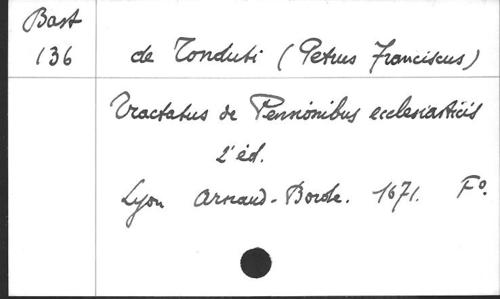 Bast
136
de Tonduti (Petrus Franciscus)
Tractatus de Pensionibus ecclesiasticis
2' éd.
Lyon Arnaud-Borde. 1671. Fº.